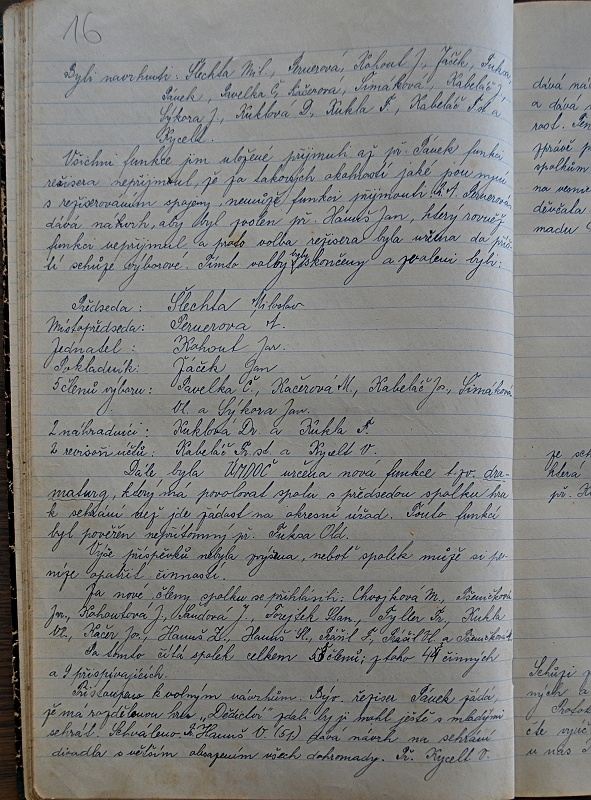 16
Byli navrhnuti: Šlechta Mil., Peruerová, Kohout J., Jáček, Fuksa,
Pánek, Pavelka Č., Kačerová, Šimáková, Kabeláč J.,
Sýkora J., Kuklová D., Kukla F., Kabeláč F. st. a
Kycelt.
Všichni funkce jim uložené přijmuli až př. Pánek funkci
režisera nepřijmul, že za takových okolností jaké jsou nyní
s režiserováním spojeny, nemůže funkci přijmouti.
dává návrh, aby byl zvolen př. Hanuš Jan, který rovněž
funkci nepřijmul a proto volba režisera byla určena do příš-
tí schůze výborové. Tímto volby byly skončeny a zvoleni byli:
Předseda: Šlechta Miloslav
Místopředseda: Peruerova A.
Jednatel: Kohout Jar.
Pokladník: Jáček Jan
5 členů výboru: Pavelka Č., Kačerová M., Kabeláč Jo., Šimáková
Vl. a Sýkora Jan.
2 náhradníci: Kuklová Dr. a Kukla F.
2 revisoři účtů: Kabeláč Fr. st. a Kycelt V.
Dále byla ÚMDOČ určena nová funkce t. zv. dra-
maturg, který má povolovat spolu s předsedou spolku hru
k sehrání než jde žádost na okresní úřad. Touto funkcí
byl pověřen nepřítomný př. Fuksa Old.
Výše příspěvků nebyla zvýšena, neboť spolek může si pe-
níze opatřit činností.
Za nové členy spolku se přihlásili: Chvojková M., Pšeničková
Jar., Kohoutová J., J., Fejtek Stan., Tyller Fr., Kukla
Vl., Kačer Jo., Hanuš Z., Hanuš Sl., Rášil F., Rášil Vl. a
Za tímto čítá spolek celkem členů, z toho 44 činných
a 9 přispívajících.
Přistoupeno k volným návrhům. Býv. režiser Pánek žádá,
že má rozdělanou hru „Dědictví" zdali by ji mohl ještě s mladými
sehrát. Schváleno. Př. Hanuš V. (51) dává návrh na sehrání
divadla s větším obsazením všech dohromady. Př. Kycelt V.
dává
a dává
zprávě
spolkům
na
děvčata
která
př.
Schůzi
čte
u nás